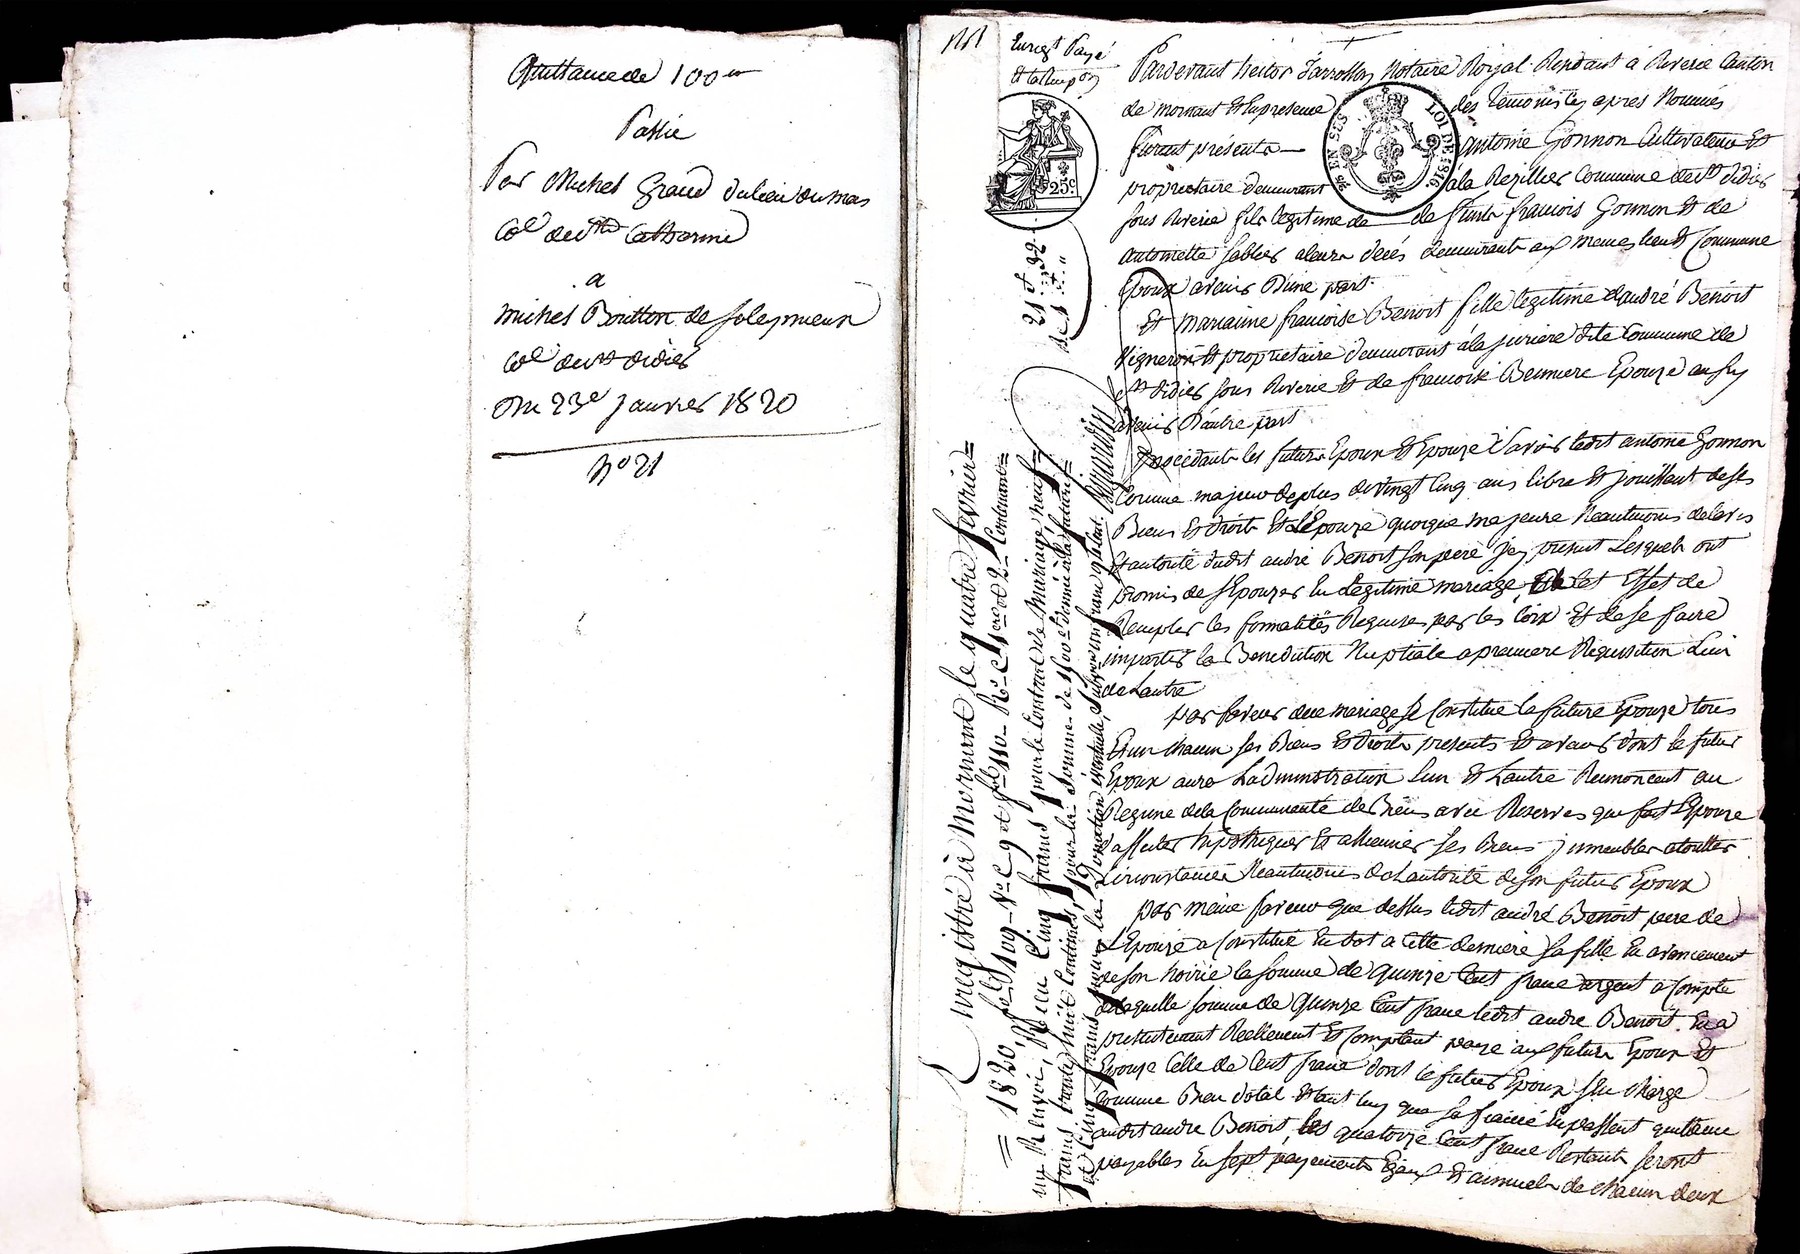 Quittance de 100
Passée
Par Michel Graud du lieu du mas
Catherine
a
michel Boutton de Soleymieux
didier
Du 23e janvier 1820
No 21
Enregt Payé
25c
LOI DE 1816
EN SUS
Pardevant hector Jarrosson Notaire Royal Résidant à Riverie Canton
de mornant Et En présence des Témoins Cy après Nommés
furent présents antoine Gonnon Cultivateur Et
propriétaire demeurant ala Rezillier Commune de st didier
sous Riverie fils légitime de de furent francois Gonnon Et de
antoinette Sablier demeurants aux memes lieu Et Commune
Epoux avenir D'une part
Et marianne francoise Benoit fille legitime d'andré Benoit
Vigneron Et proprietaire demeurant à la dite Commune de
st didier sous Riverie Et de francoise Epouze aussy
avenir D'autre part
procédants les futurs Epoux Et Epouze savoir ledit antoine Gonnon
Comme majeur de plus de vingt Cinq ans libre Et jouissant de ses
Biens Et droits Et L'Epouze quoique majeure Neantmoins de l'avis
Et autorité dudit andré Benoit son père jcy présent Lesquels ont
promis de s'Epouzer En Légitime mariage cet Effet de
Remplir les formalités Requises par les Loix Et de se faire
impartir la Benediction Nuptiale a premiere Requisition L'un
de Lautre
par faveur de ce mariage se Constitue la future Epouze tous
Et un chacun ses Biens Et droits présents Et avenir dont le futur
Epoux aura Ladministration L'un Et Lautre Renoncent au
Regime de la Communauté de Biens avec Reserves que fait L'Epouze
d'affecter hipothequer Et alliener ses Biens jmmeubles
Circonstances Neantmoins de Lautorité de son futur Epoux
par même faveur que dessus ledit andré Benoit pere de
L'Epouze a Constitué En dot a Cette derniere sa fille En avancement
de son hoirie la somme de quinze Cent franc argent a Compte
de laquelle somme de quinze Cent franc ledit andré Benoit En a
présentement Réellement Et Comptant payé aux futurs Epoux Et
Epouze Celle de Cent franc dont le futur Epoux s'En Charge
Comme Bien dotal Et tant luy que sa fiancée En passent quittance
audit andré Benoit, les quatorze Cent franc Restants seront
payables En sept payements Egaux Et annuels de chacun deux
Enregistré à Mornant le quatre février
1820, fol 109 Vo C 9 et fol 110 Ro C 1ere et 2 Contenant
un Renvoi, Reçu Cinq francs pour le Contrat de Mariage, neuf
francs trente huit Centimes, pour la somme de 1500 donnée à la future
et Cinq francs pour la Donation éventuelle